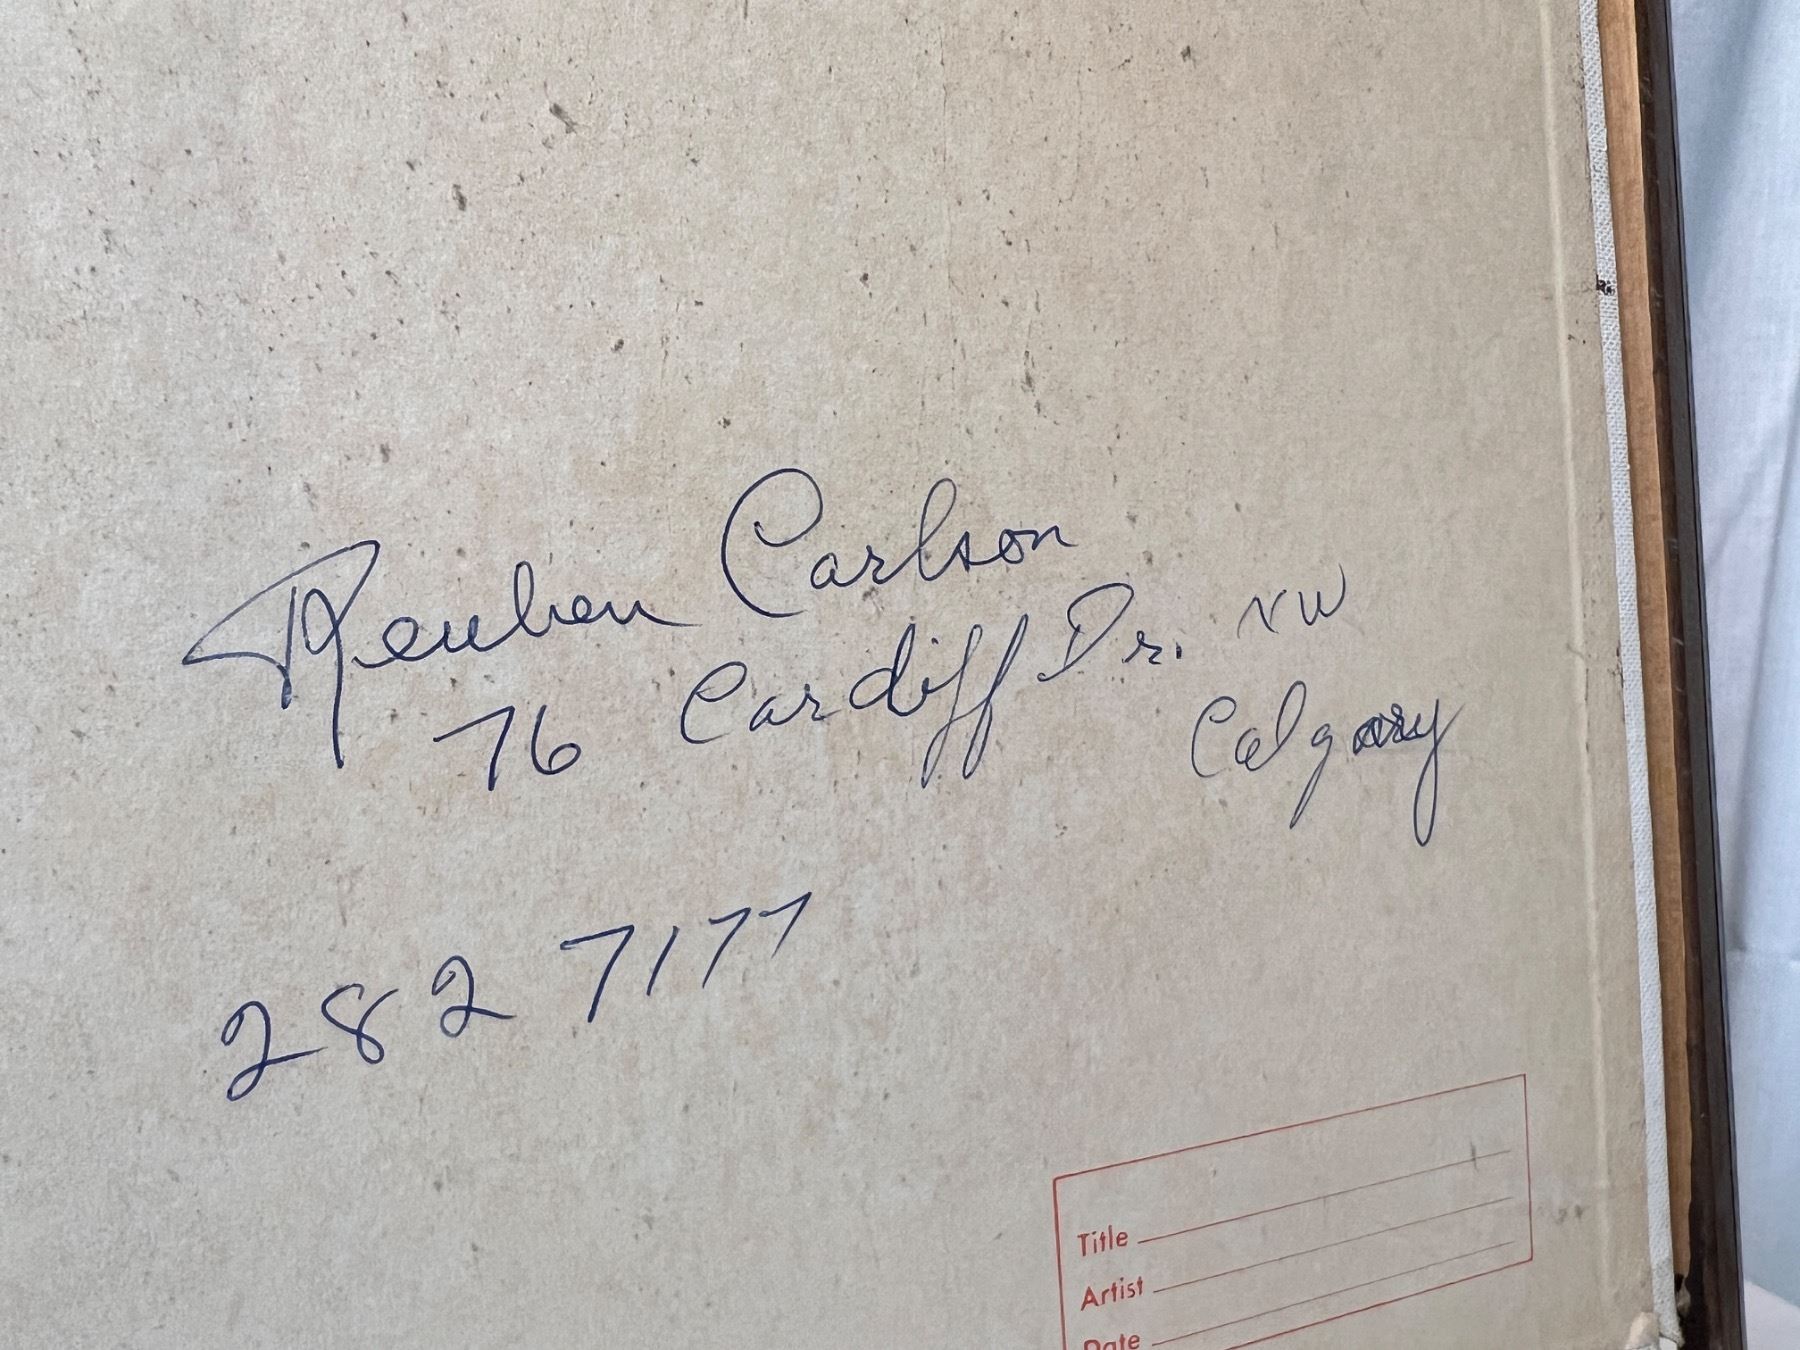 Reuben Carlson
76 Cardiff Dr. NW
Calgary
282 7177
Title
Artist
Date